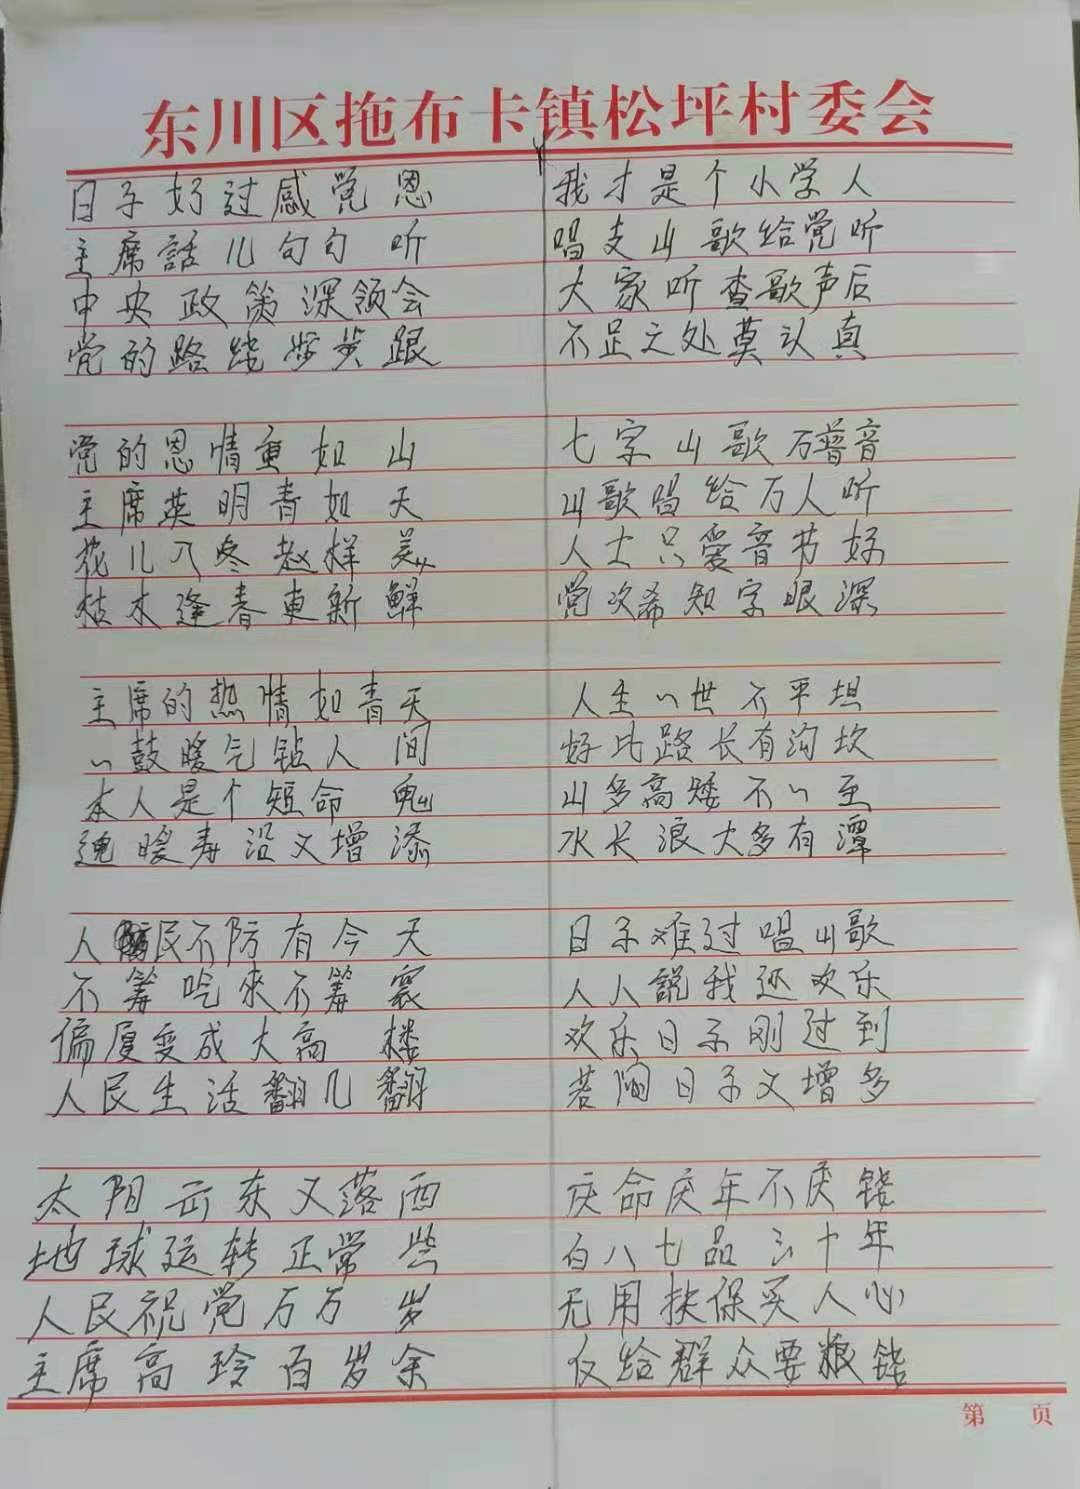 东川区拖布卡镇松坪村委会
日子好过感党恩
主席話儿句句听
中央政策深领会
党的路线步步跟
党的恩情重如山
主席英明青如天
花儿入冬赵样美
枯木逢春更新鲜
主席的热情如青天
一鼓暖气钻人间
本人是个短命鬼
逸暖寿沿又增添
人民不防有今天
不筹吃來不筹穿
偏厦变成大高楼
人民生活翻几翻
太阳云东又落西
地球运转正常些
人民祝党万万岁
主席高玲百岁余
我才是个小学人
唱支山歌给党听
大家听查歌声后
不足之处莫认真
七字山歌万普音
山歌唱给万人听
人士只爱音节好
党次希知字眼深
人生一世不平坦
好比路长有沟坎
山多高矮不一至
水长浪大多有潭
日子难过唱山歌
人人説我还欢乐
欢乐日子刚过到
若间日子又增多
庆命庆年不庆钱
白八七品三十年
无用扶保买人心
仅给群众要粮钱
第 页